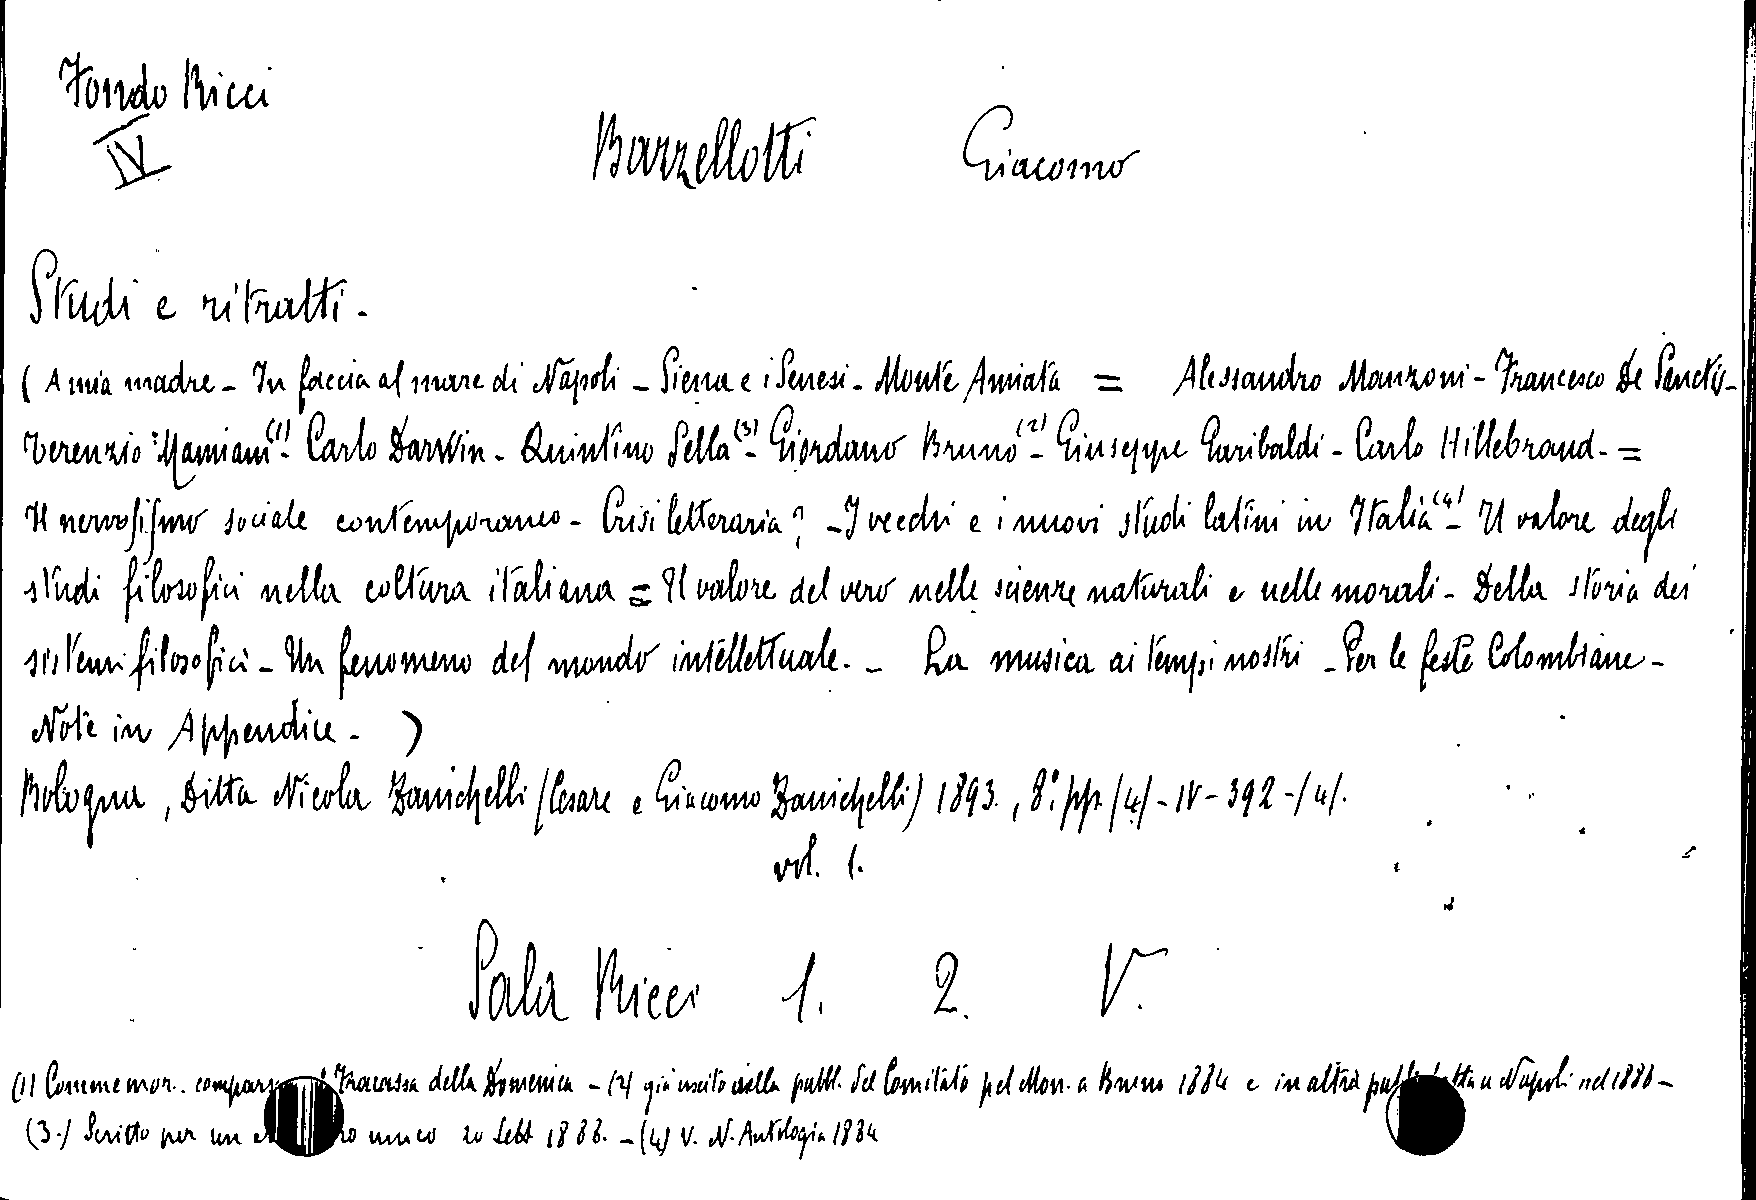 Fondo Ricci
IV
Barzellotti Giacomo
Studi e ritratti.
(A mia madre - In faccia al mare di Napoli - Siena e i Senesi - Monte Amiata = Alessandro Manzoni - Francesco De Sanctis -
Terenzio Mamiani (1) - Carlo Darwin - Quintino Sella (3) - Giordano Bruno (2) - Giuseppe Garibaldi - Carlo Hillebrand. =
Il nervosismo sociale contemporaneo - Crisi letteraria? - I vecchi e i nuovi studi latini in Italia (4) - Il valore degli
studi filosofici nella coltura italiana = Il valore del vero nelle scienze naturali e nelle morali - Della storia dei
sistemi filosofici - Un fenomeno del mondo intellettuale. - La musica ai tempi nostri - Per le feste Colombiane -
Note in Appendice. )
Bologna, Ditta Nicola Zanichelli (Cesare e Giacomo Zanichelli) 1893., 8º. pp. /4/ - IV - 392 - /4/.
vol. 1.
Sala Ricci 1. 2. V.
(1) Commemor. Fracassa della Domenica - (2) già uscito nella pubbl. del Comitato pel Mon. a Bruno 1884 e in altra a Napoli nel
(3.) Scritto per un unico 20 Sett. - (4) V. N. Antologia 1884